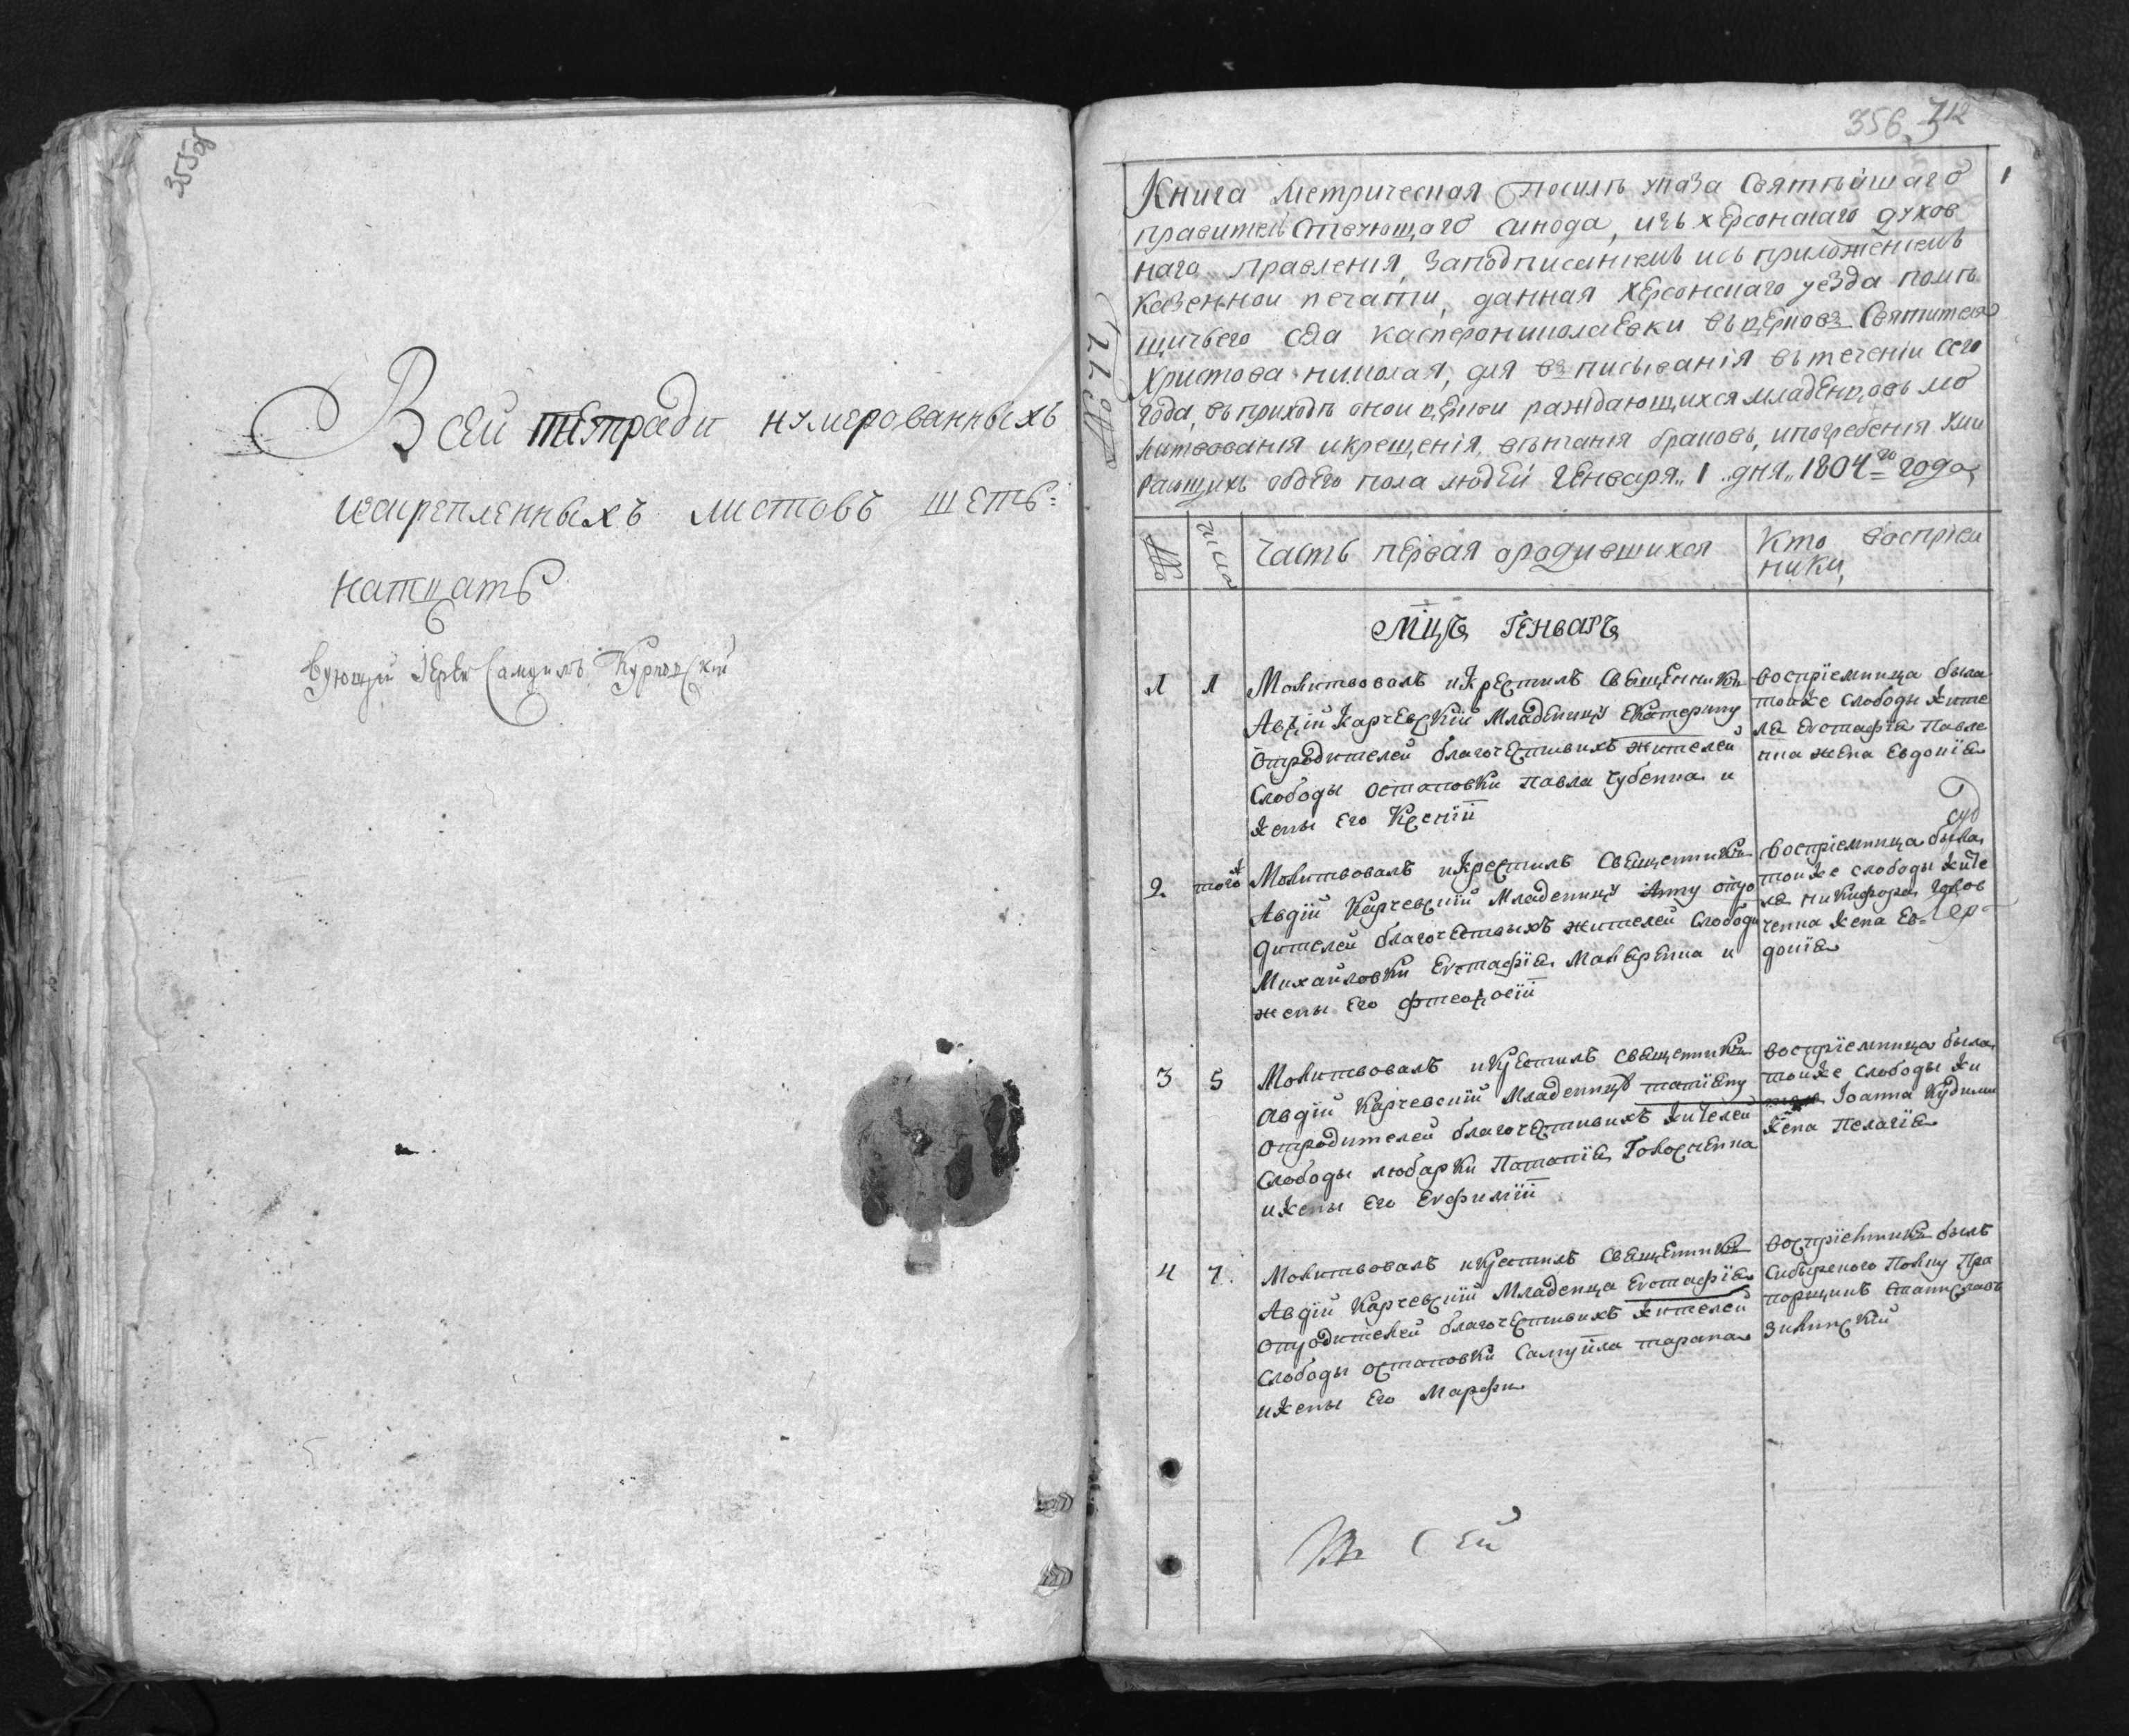 355об
Всей тетради нумерованныхъ
искрепленныхъ листовъ шеть=
натцать
Іерей Самуилъ
356. 712
1
Книга метрическая посилѣ указа Святѣйшаго
правительствующаго синода, изъ херсонскаго духов
наго правленія, заподписаніемъ исъ приложеніемъ
казенной печати, данная херсонскаго уѣзда помѣ
щичьего села касперониколаевки въ церковь Святителя
Христова николая, для вписыванія въ теченіи сего
года, въ приходѣ оной церкви раждающихся младенцовъ мо
литвованія икрещенія, вѣнчанія браковъ, ипогребенія уми
рающихъ обоего пола людей Генваря „1„ дня „1804го года
№ числа Часть первая ородившихся Кто воспріем
ники,
Мцъ Генварь
1 1 Молитвовалъ икрестилъ священникъ
Авдій Карчевскій младеницу Екатерину
отродителей благочестивихъ жителей
Слободы остановки павла Чубенка и
жены его Ксеніи
воспріемница была
тойже слободы жите
ля Евстафія павле
нка жена Евдокія
2 тогож Молитвовалъ икрестилъ священникъ
Авдій Карчевскій младеницу Анну отро
дителей благочестивыхъ жителей слободы
Михайловки Евстафія Макаренка и
жены его фтеодосіи
воспріемница была
тойже слободы жите
ля никифора
ченка жена Ев
докія
3 5 Молитвовалъ икрестилъ священникъ
Авдій Карчевскій младеницу татіяну
отродителей благочестивихъ жителей
слободы любарки Патапія Голосненка
ижены его Евфиміи
воспріемница была
тойже слободы жи
Іоанна Кудими
жена Пелагія
4 7. Молитвовалъ икрестилъ священникъ
Авдій Карчевскій младенца Евстафія
отродителей благочестивихъ жителей
слободы остановки Самуйла тарана
ижены его Марфи
воспріемникъ былъ
Сибѣрского полку Пра
порщикъ Станиславъ
Зилинскій
Сей